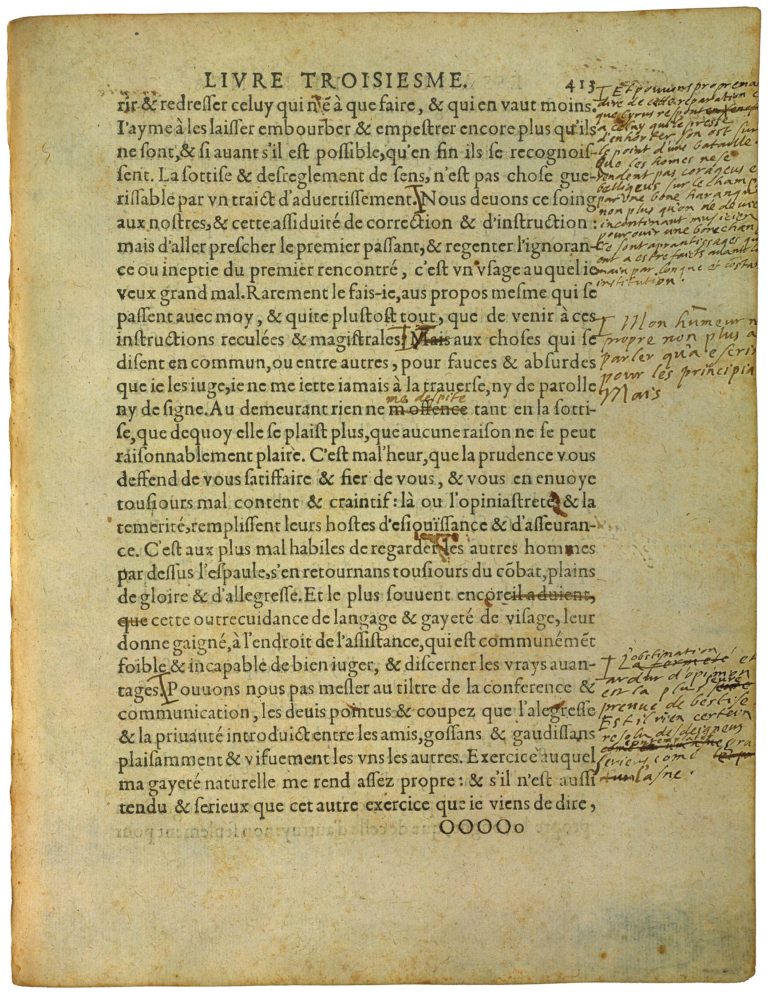 LIVRE TROISIESME. 413
rir & redresser celuy qui n'ẽ à que faire, & qui en vaut moins.
I'ayme à les laisser embourber & empestrer encore plus qu'ils
ne sont, & si auant s'il est possible, qu'en fin ils se recognois-
sent. La sottise & desreglement de sens, n'est pas chose gue-
rissable par vn traict d'aduertissement. Nous deuons ce soing
aux nostres, & cette assiduité de correction & d'instruction:
mais d'aller prescher le premier passant, & regenter l'ignoran-
ce ou ineptie du premier rencontré, c'est vn vsage auquel ie
veux grand mal. Rarement le fais-ie, aus propos mesme qui se
passent auec moy, & quite plustost tout, que de venir à ces
instructions reculées & magistrales. Mais aux choses qui se
disent en commun, ou entre autres, pour fauces & absurdes
que ie les iuge, ie ne me iette iamais à la trauerse, ny de parolle
ny de signe. Au demeurant rien ne m'offence tant en la sotti-
me despite
se, que dequoy elle se plaist plus, que aucune raison ne se peut
raisonnablement plaire. C'est mal'heur, que la prudence vous
deffend de vous satiffaire & fier de vous, & vous en enuoye
tousiours mal content & craintif: là ou l'opiniastreté & la
temerité, remplissent leurs hostes d'esiouïssance & d'asseuran-
ce. C'est aux plus mal habiles de regarder les autres hommes
par dessus l'espaule, s'en retournans tousiours du cõbat, plains
de gloire & d'allegresse. Et le plus souuent encore il aduient,
que cette outrecuidance de langage & gayeté de visage, leur
donne gaigné, à l'endroit de l'assistance, qui est communémẽt
foible & incapable de bien iuger, & discerner les vrays auan-
tages. Pouuons nous pas mesler au tiltre de la conference &
communication, les deuis pointus & coupez que l'alegresse
& la priuauté introduict entre les amis, gossans & gaudissans
plaisamment & vifuement les vns les autres. Exercice auquel
ma gayeté naturelle me rend assez propre: & s'il n'est aussi
tendu & serieux que cet autre exercice que ie viens de dire,
OOOOo
Et pouvons propremã
dire de cette reparation
que Cyrus respont
a celuy qui le presse
d'enhorter son ost sur
le point d'une bataille
Que les homes ne se
rendent pas corageus e
belliqeus sur le champ
par une bone harangu
non plus qu'on ne devie
incontinant musicien
pour ouir une bone chan
Ce sont aprantissages q
ont a estre faicts avant
main par longue et costa
institution.
Mon humeur n
propre non plus a
parler qu'a escri
pour les principia
Mais
l'obstination
La fermeté et
ardeur d'opinion
est la plus sure
preuue de bestise
Est il rien certein
resolu desdeigneus
serieus come
l'asne!